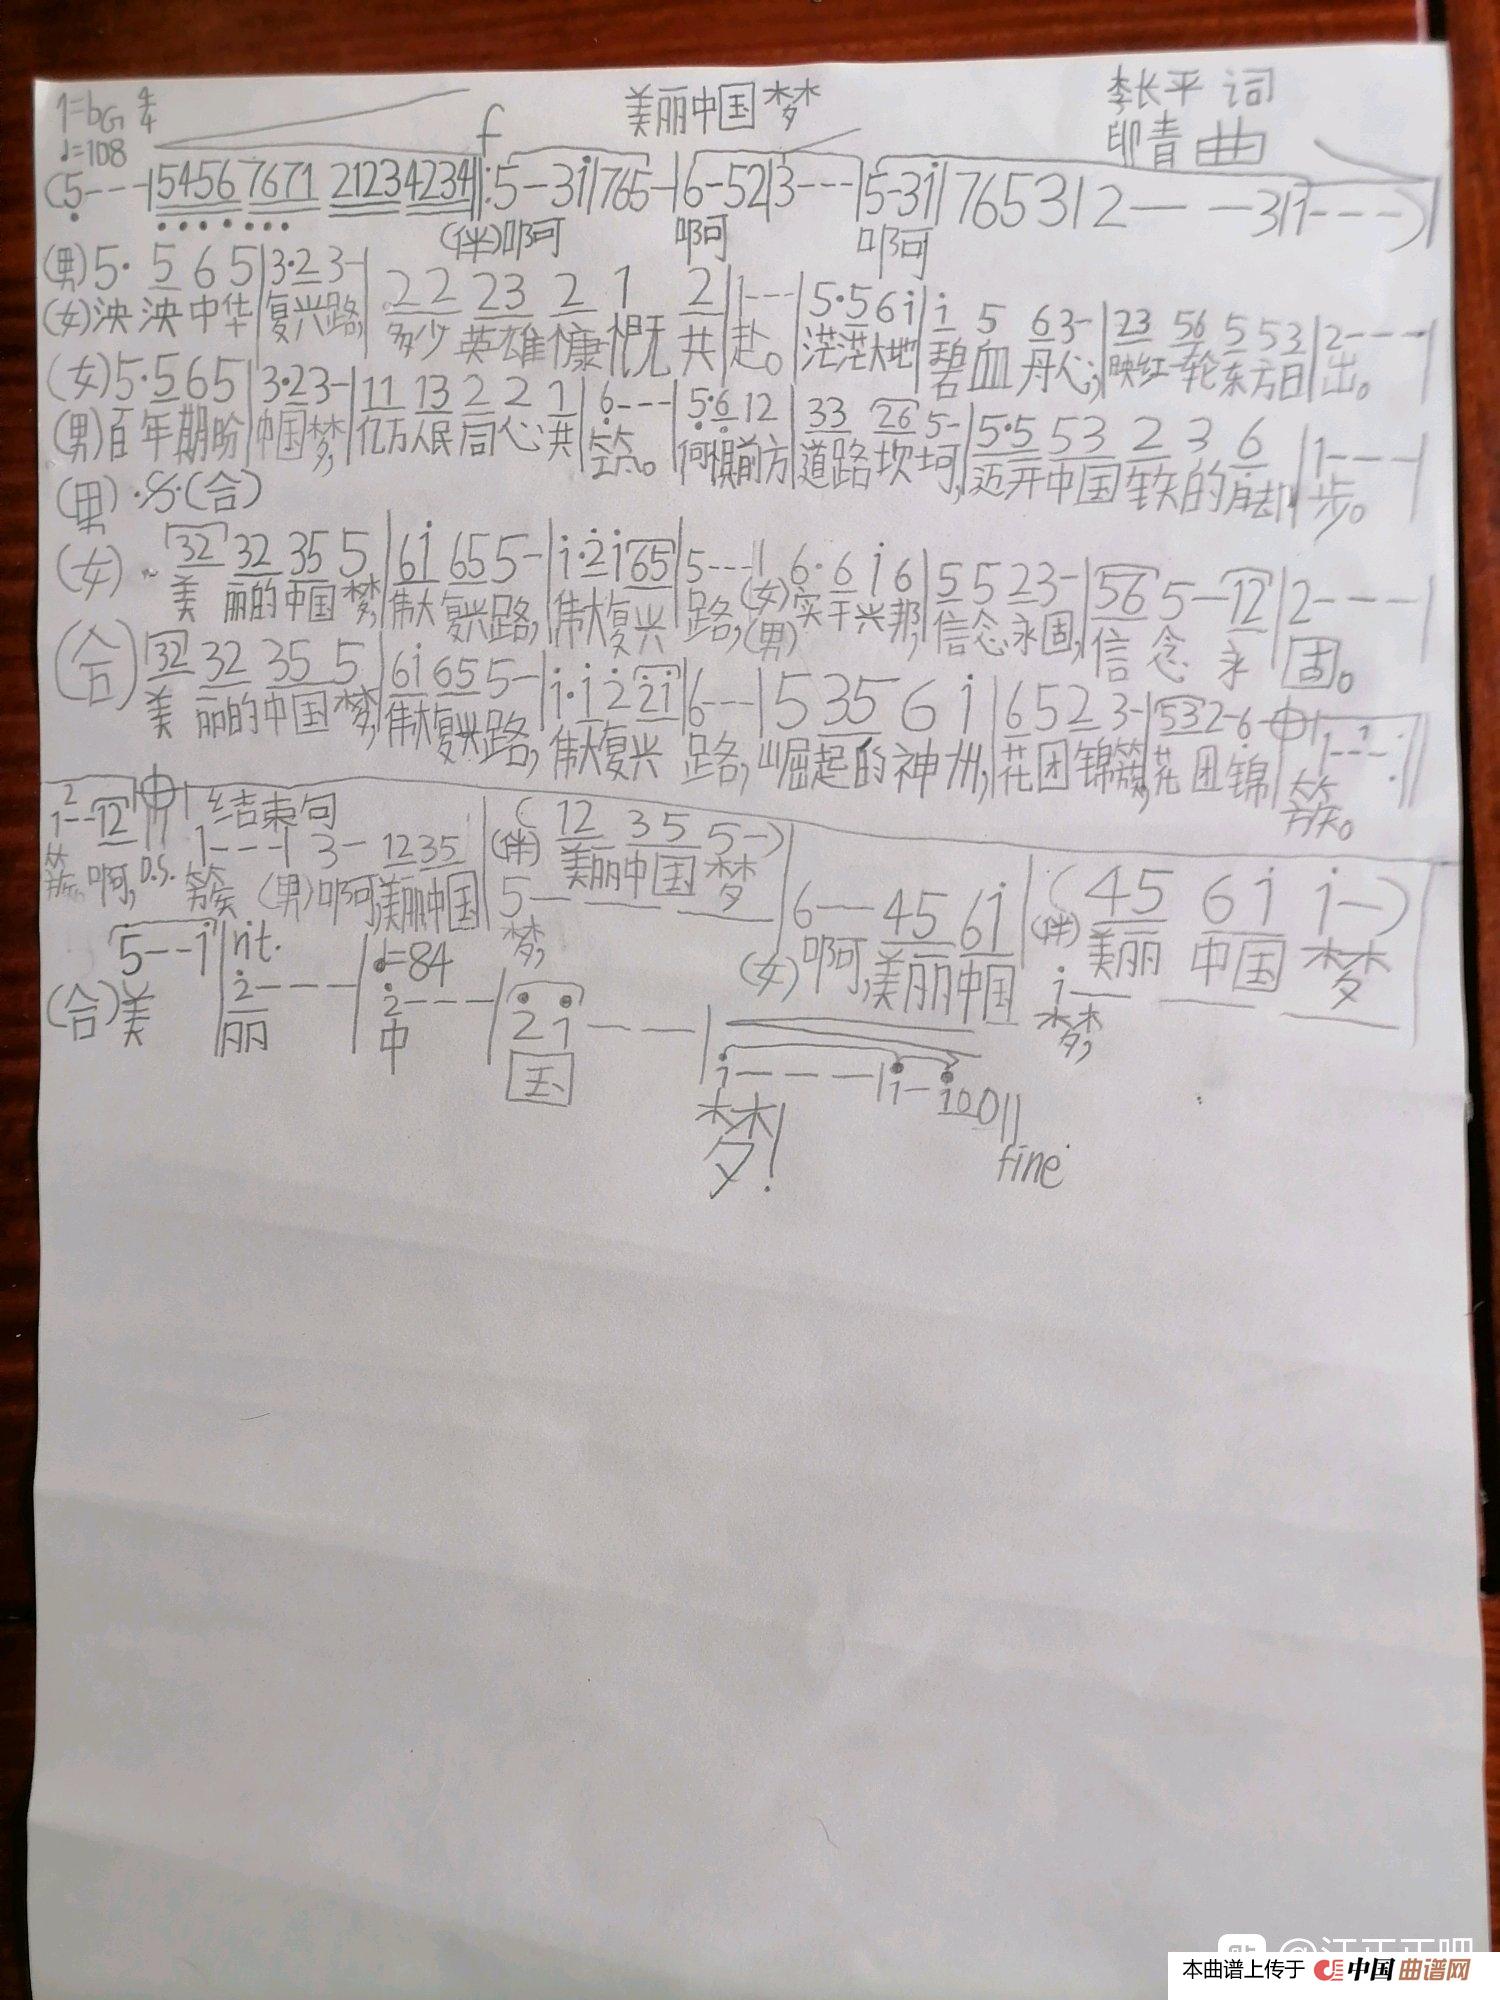 1=bG 4/4
美丽中国梦
李长平 词
♩=108
f
印青 曲
(5---|5456 7671 2123 4234‖:5-3i|765-|6-52|3---|5-3i|7653|2---3|1---)|
(伴)啊 啊 啊
(男)5· 5 6 5|3·2 3-|22 23 2 1 2|1---|5·5 6 i|i 5 6 3-|23 56 5 53|2---|
(女)泱泱中华|复兴路,|多少英雄慷慨共|赴。|茫茫大地|碧血丹心,|映红一轮东方日|出。
(女)5·5 6 5|3·2 3-|11 13 2 2 1|6---|5·6 12|33 26 5-|5·5 53 2 3 6|1---|
(男)百年期盼|中国梦,|亿万人民同心共|筑。|何惧前方|道路坎坷,|迈开中国铁的脚|步。
(男)·𝄋·(合)
(女) 32 32 35 5|6i 65 5-|i·2 i 65|5---|6·6 i 6|5 5 2 3-|56 5-12|2---|
美丽的中国梦,|伟大复兴路,|伟大复兴|路,(女)实干兴邦,|信念永固,|信念永|固。
(男)
(合)32 32 35 5|6i 65 5-|i·i 2 2i|6---|5 35 6 i|6 5 2 3-|53 2-6 𝄌|1---:‖
美丽的中国梦,|伟大复兴路,|伟大复兴|路,|崛起的神州,|花团锦簇,|花团锦|簇。
2
1--12 𝄌 结束句
1---|3- 1235|(伴)(12 35 5-)
簇。啊, D.S. 簇 (男)啊,美丽中国 美丽中国梦
5---
梦,
6--45 6i|(伴)(45 6i i-)
(女)啊,美丽中国 美丽中国梦
i---
梦,
5--i|rit. 2---|♩=84 2---|21--|i---|i-i00‖
(合)美|丽|中|国|梦!
fine
本曲谱上传于 中国曲谱网